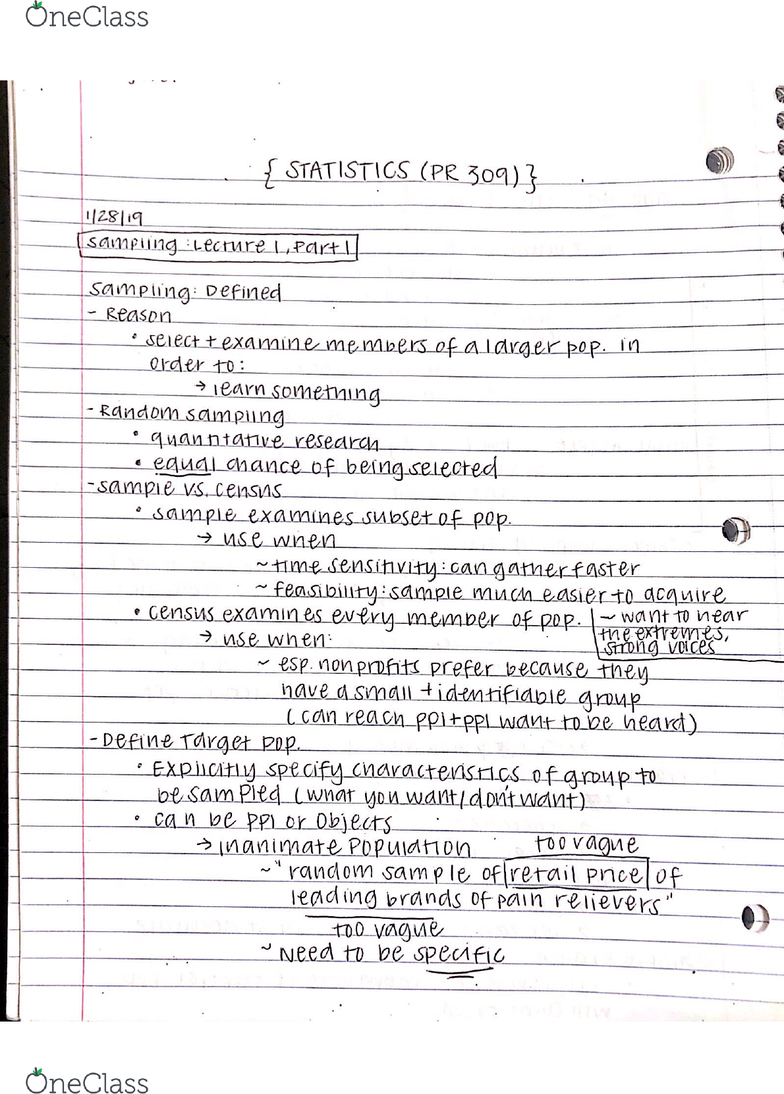 OneClass
{ STATISTICS (PR 309) }
1/28/19
Sampling: Lecture 1, Part 1
Sampling: Defined
- Reason
• select + examine members of a larger pop. in
order to:
→ learn something
- Random sampling
• quantitative research
• equal chance of being selected
- sample vs. census
• sample examines subset of pop.
→ use when
~ time sensitivity: can gather faster
~ feasibility: sample much easier to acquire
• census examines every member of pop.
~ want to hear
the extremes,
strong voices
→ use when:
~ esp. nonprofits prefer because they
have a small + identifiable group
(can reach ppl + ppl want to be heard)
- Define Target pop.
• Explicitly specify characteristics of group to
be sampled (what you want/don't want)
• can be ppl or objects
→ inanimate population
too vague
~ "random sample of retail price of
leading brands of pain relievers"
too vague
~ Need to be specific
OneClass